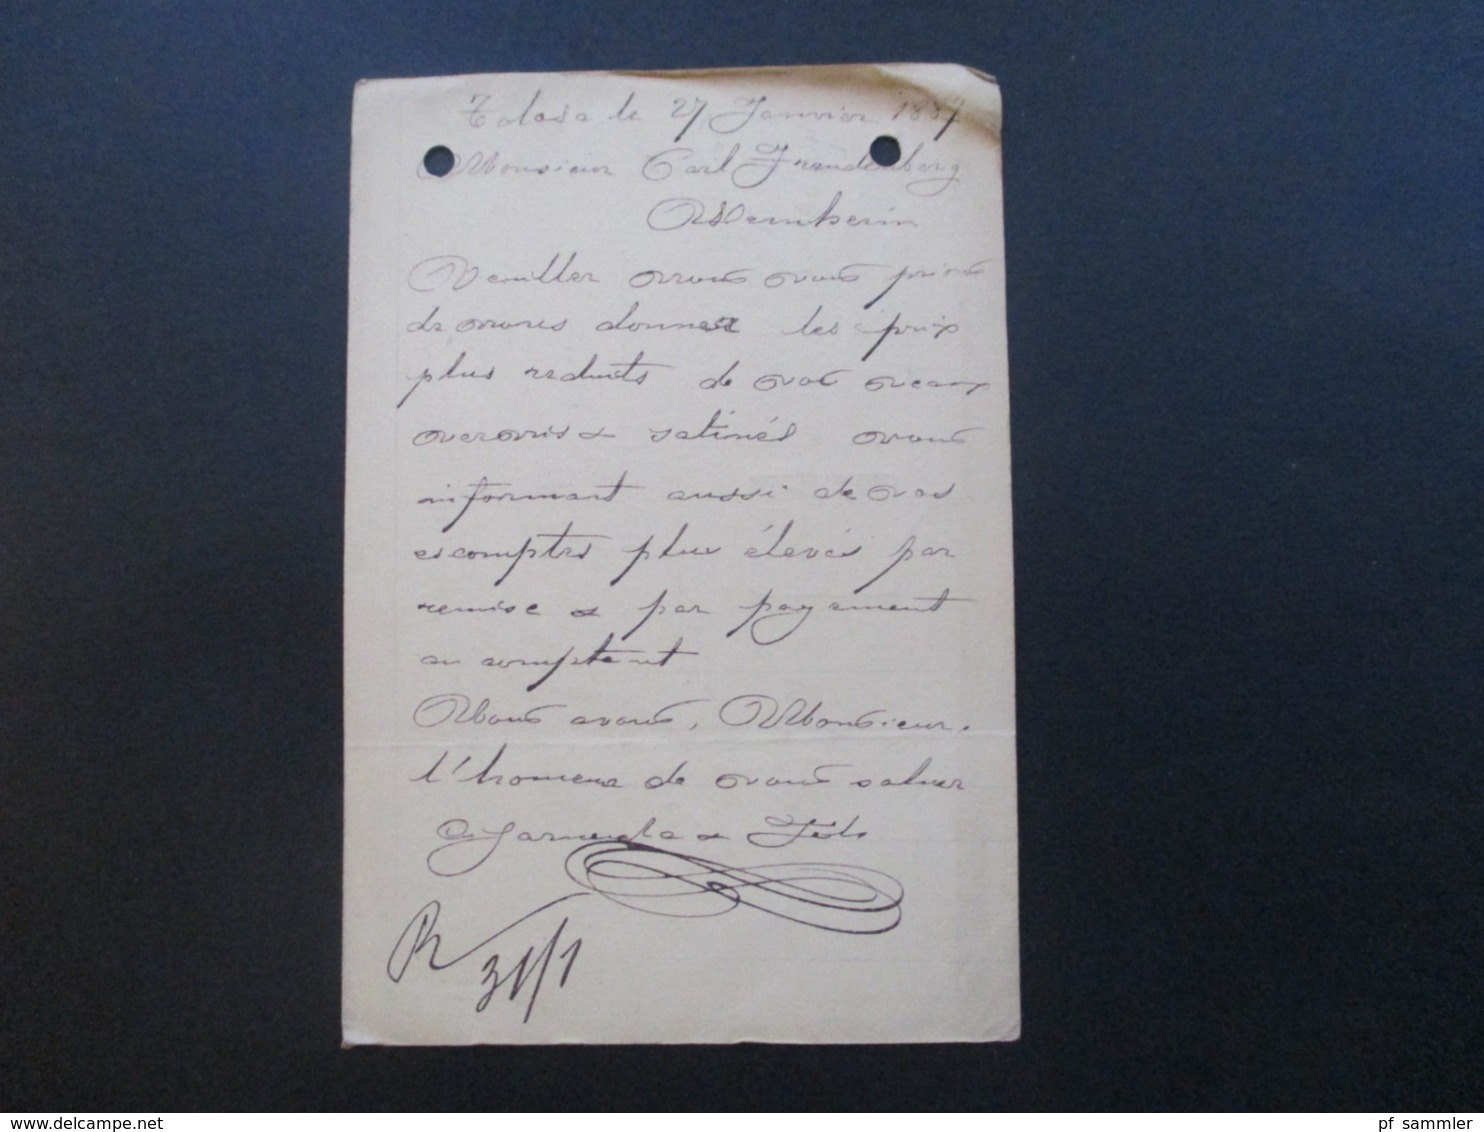 Tolosa le 27 Janvier 1887
Monsieur Carl Freudenberg
Veuiller nous vous prions
de nous donner les prix
plus reduits de vos veaux
vernis & satinés nous
informant aussi de vos
escomptes plus élevés par
remise & par payement
au comptent
Nous avons, Monsieur,
l'honneur de vous saluer
Garmendia & Fils
R 31/1
delcampe.net
pf_sammler